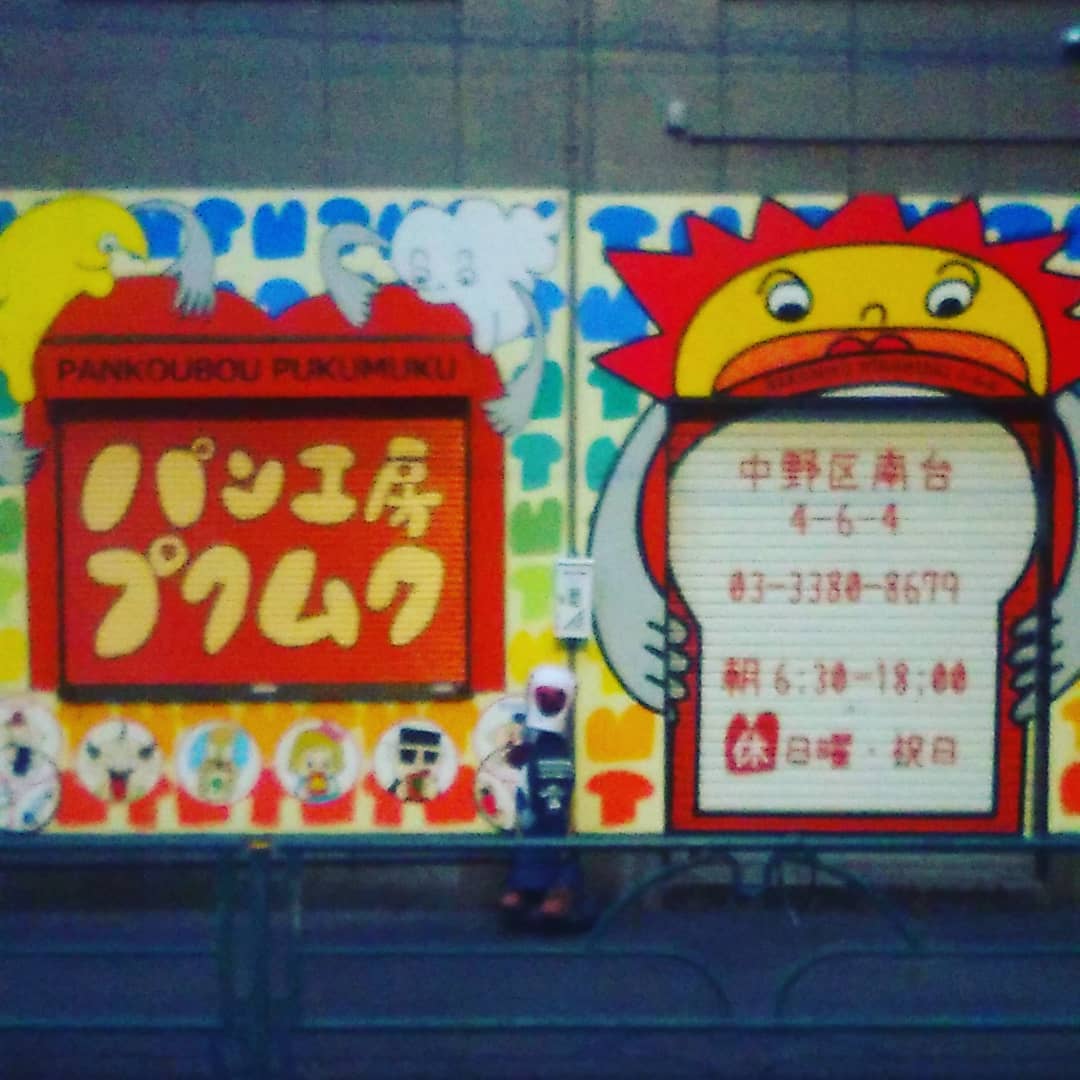 PANKOUBOU PUKUMUKU
パン工房
プクムク
中野区南台
4-6-4
03-3380-8679
朝6:30-18:00
休日曜・祝日